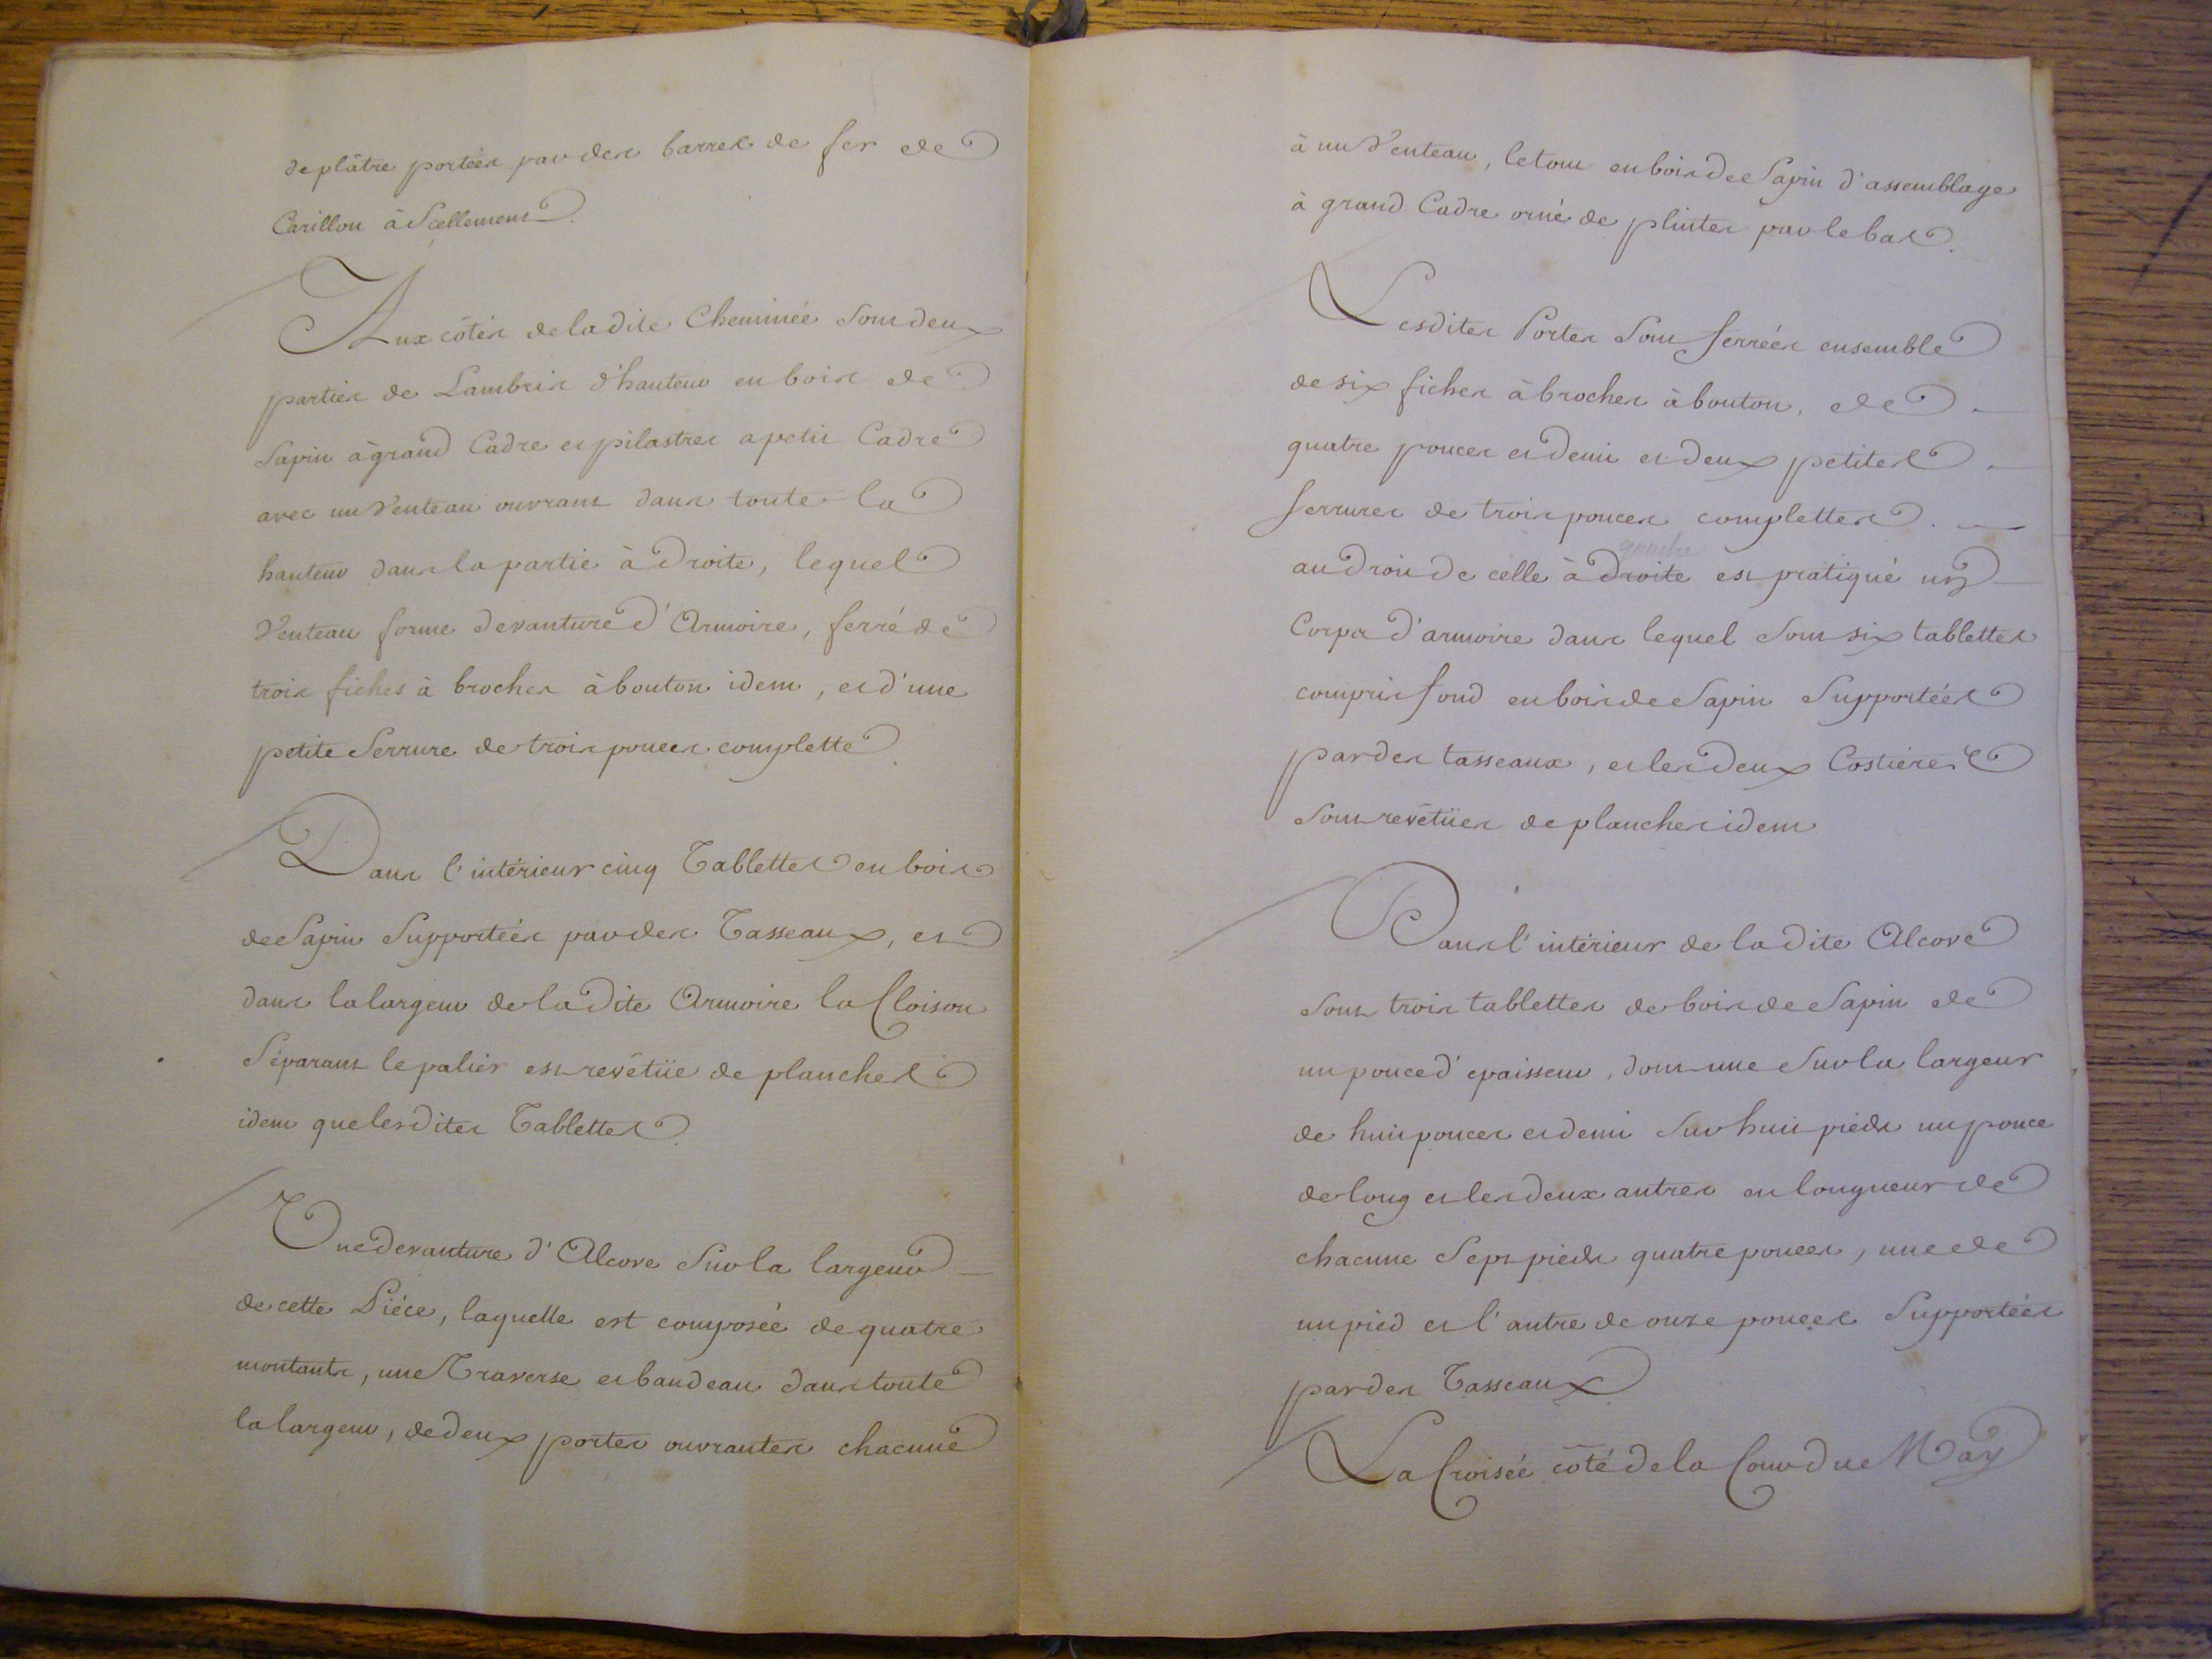 de plâtre portées par des barres de fer de
Carillon à Scellement.
Aux côtés de ladite Cheminée sont deux
parties de Lambris d'hauteur en bois de
Sapin à grand Cadre et pilastres a petit Cadre
avec un Venteau ouvrant dans toute la
hauteur dans la partie à Droite, lequel
Venteau forme devanture d'Armoire, ferré de
trois fiches à broches à bouton idem, et d'une
petite Serrure de trois pouces complette.
Dans l'intérieur cinq Tablettes en bois
de Sapin Supportées par des Tasseaux, et
dans la largeur de la Dite Armoire la Cloison
Séparant le palier est revêtüe de planches
idem que lesdites Tablettes.
Une devanture d'Alcove Sur la largeur
de cette Piéce, laquelle est composée de quatre
montants, une Traverse et bandeau dans toute
la largeur, de deux portes ouvrantes chacune
à un Venteau, le tout en bois de Sapin d'assemblage
à grand Cadre orné de plintes par le bas.
Lesdites Portes Sont ferrées ensemble
de six fiches à broches à bouton, de
quatre pouces et demi et deux petites
serrures de trois pouces complettes.
gauche
au droit de celle à Droite est pratiqué un
Corps d'armoire dans lequel Sont six tablettes
compris fond en bois de Sapin Supportées
par des tasseaux, et les deux Costieres
Sont revêtües de planches idem
Dans l'intérieur de la Dite Alcove
Sont trois tablettes de bois de Sapin de
un pouce d'epaisseur, dont une Sur la largeur
de huit pouces et demi Sur huit pieds un pouce
de long et les deux autres en longueur de
chacune Sept pieds quatre pouces, une de
un pied et l'autre de onze pouces Supportées
par des Tasseaux.
La Croisée côté de la Cour du May